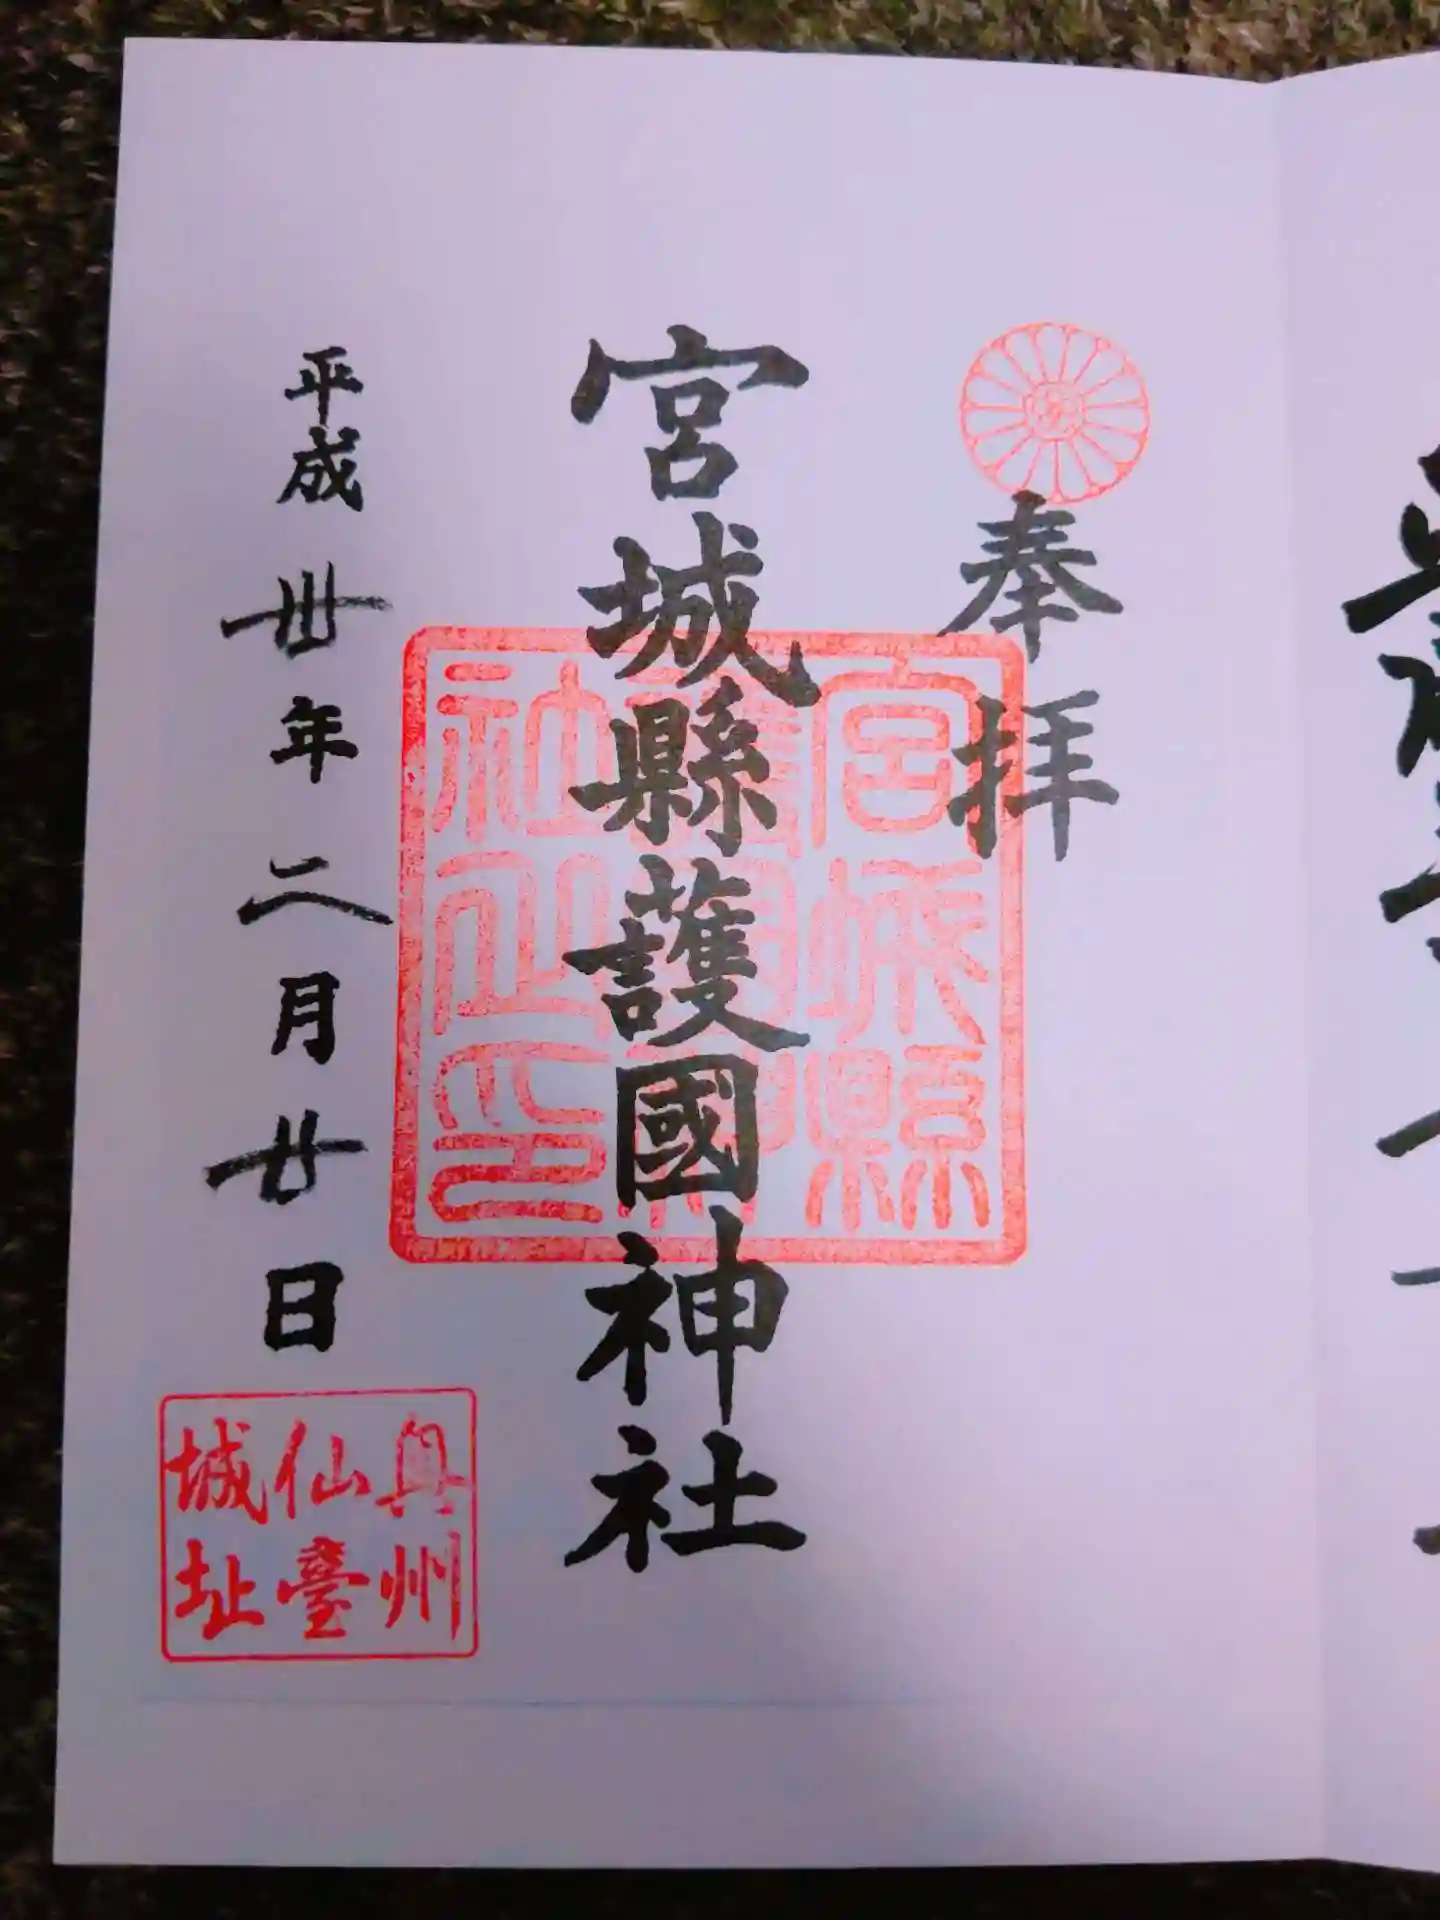 奉拝
宮城縣護國神社
宮城縣
護國神
社之印
平成丗年二月廿日
奥州
仙臺
城址